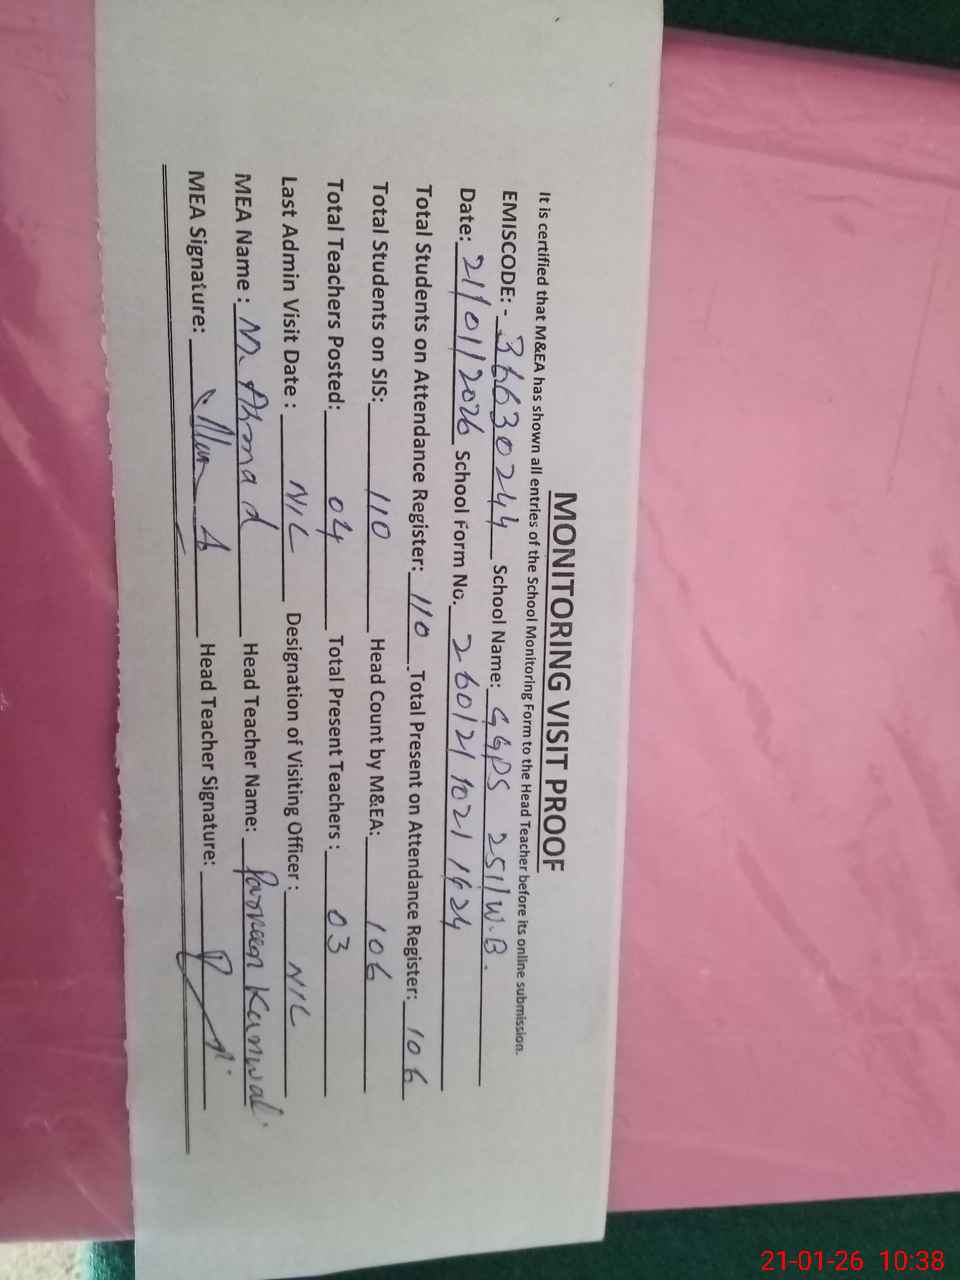 MONITORING VISIT PROOF
It is certified that M&EA has shown all entries of the School Monitoring Form to the Head Teacher before its online submission.
EMISCODE: - 36630244 School Name: GGPS 251/W.B.
Date: 21/01/2026 School Form No. 26012110211424
Total Students on Attendance Register: 110 Total Present on Attendance Register: 106
Total Students on SIS: 110 Head Count by M&EA: 106
Total Teachers Posted: 04 Total Present Teachers: 03
Last Admin Visit Date : NIL Designation of Visiting Officer : NIL
MEA Name : M. Ahmad Head Teacher Name: Parveen Kanwal
MEA Signature: Head Teacher Signature:
21-01-26 10:38